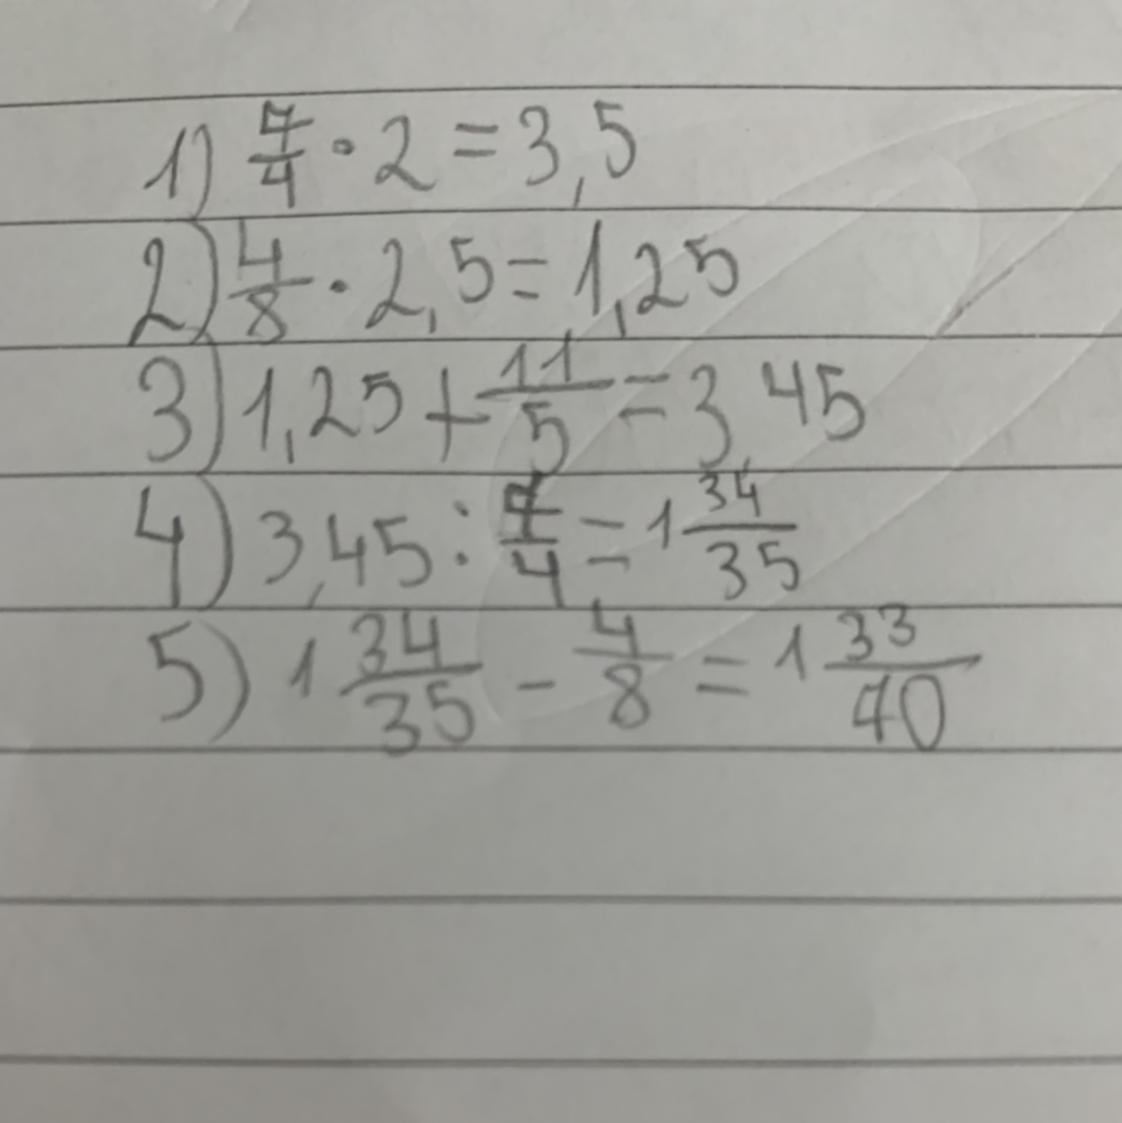 1) 7/4 · 2 = 3,5
2) 4/8 · 2,5 = 1,25
3) 1,25 + 11/5 = 3,45
4) 3,45 : 7/4 = 1 34/35
5) 1 34/35 - 4/8 = 1 33/70